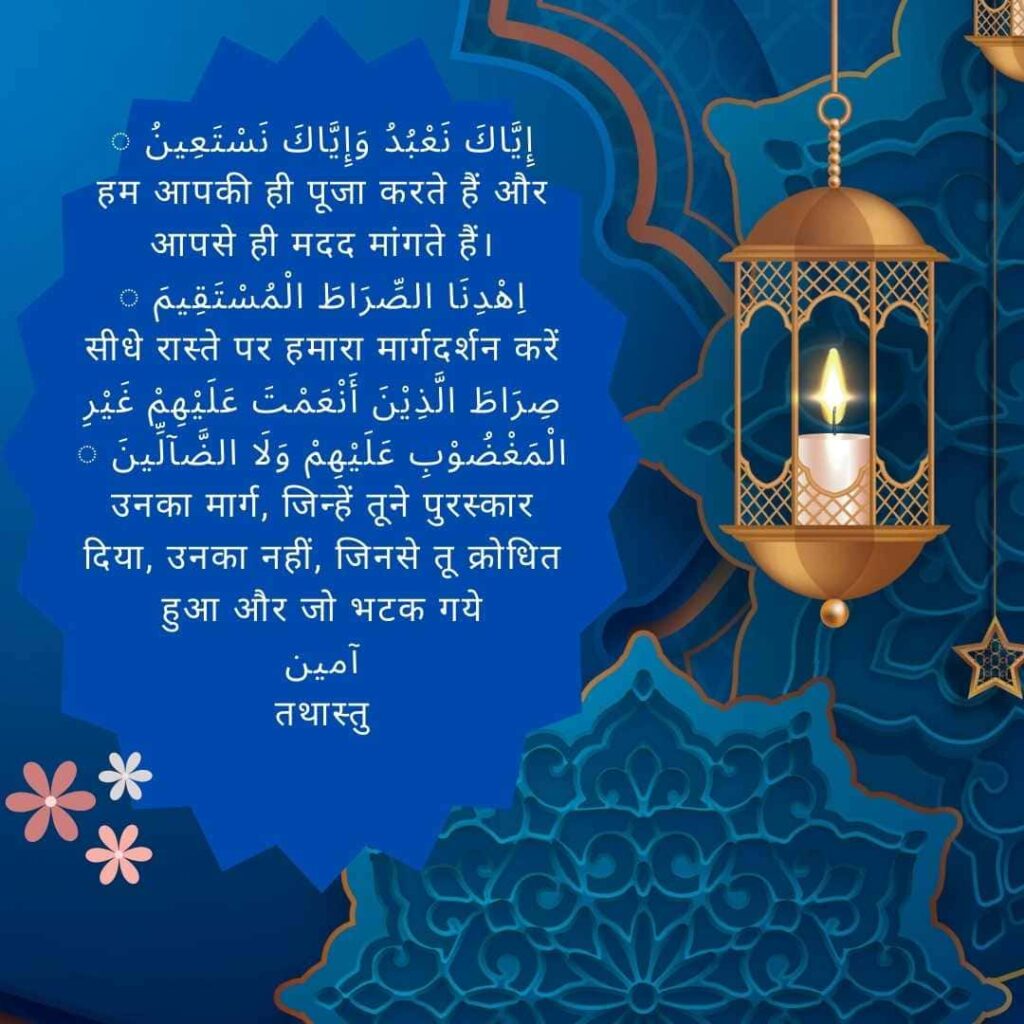 إِيَّاكَ نَعْبُدُ وَإِيَّاكَ نَسْتَعِينُ ◌
हम आपकी ही पूजा करते हैं और
आपसे ही मदद मांगते हैं।
اِهْدِنَا الصِّرَاطَ الْمُسْتَقِيمَ ◌
सीधे रास्ते पर हमारा मार्गदर्शन करें
صِرَاطَ الَّذِيْنَ أَنْعَمْتَ عَلَيْهِمْ غَيْرِ
الْمَغْضُوْبِ عَلَيْهِمْ وَلَا الضَّآلِّينَ ◌
उनका मार्ग, जिन्हें तूने पुरस्कार
दिया, उनका नहीं, जिनसे तू क्रोधित
हुआ और जो भटक गये
آمين
तथास्तु